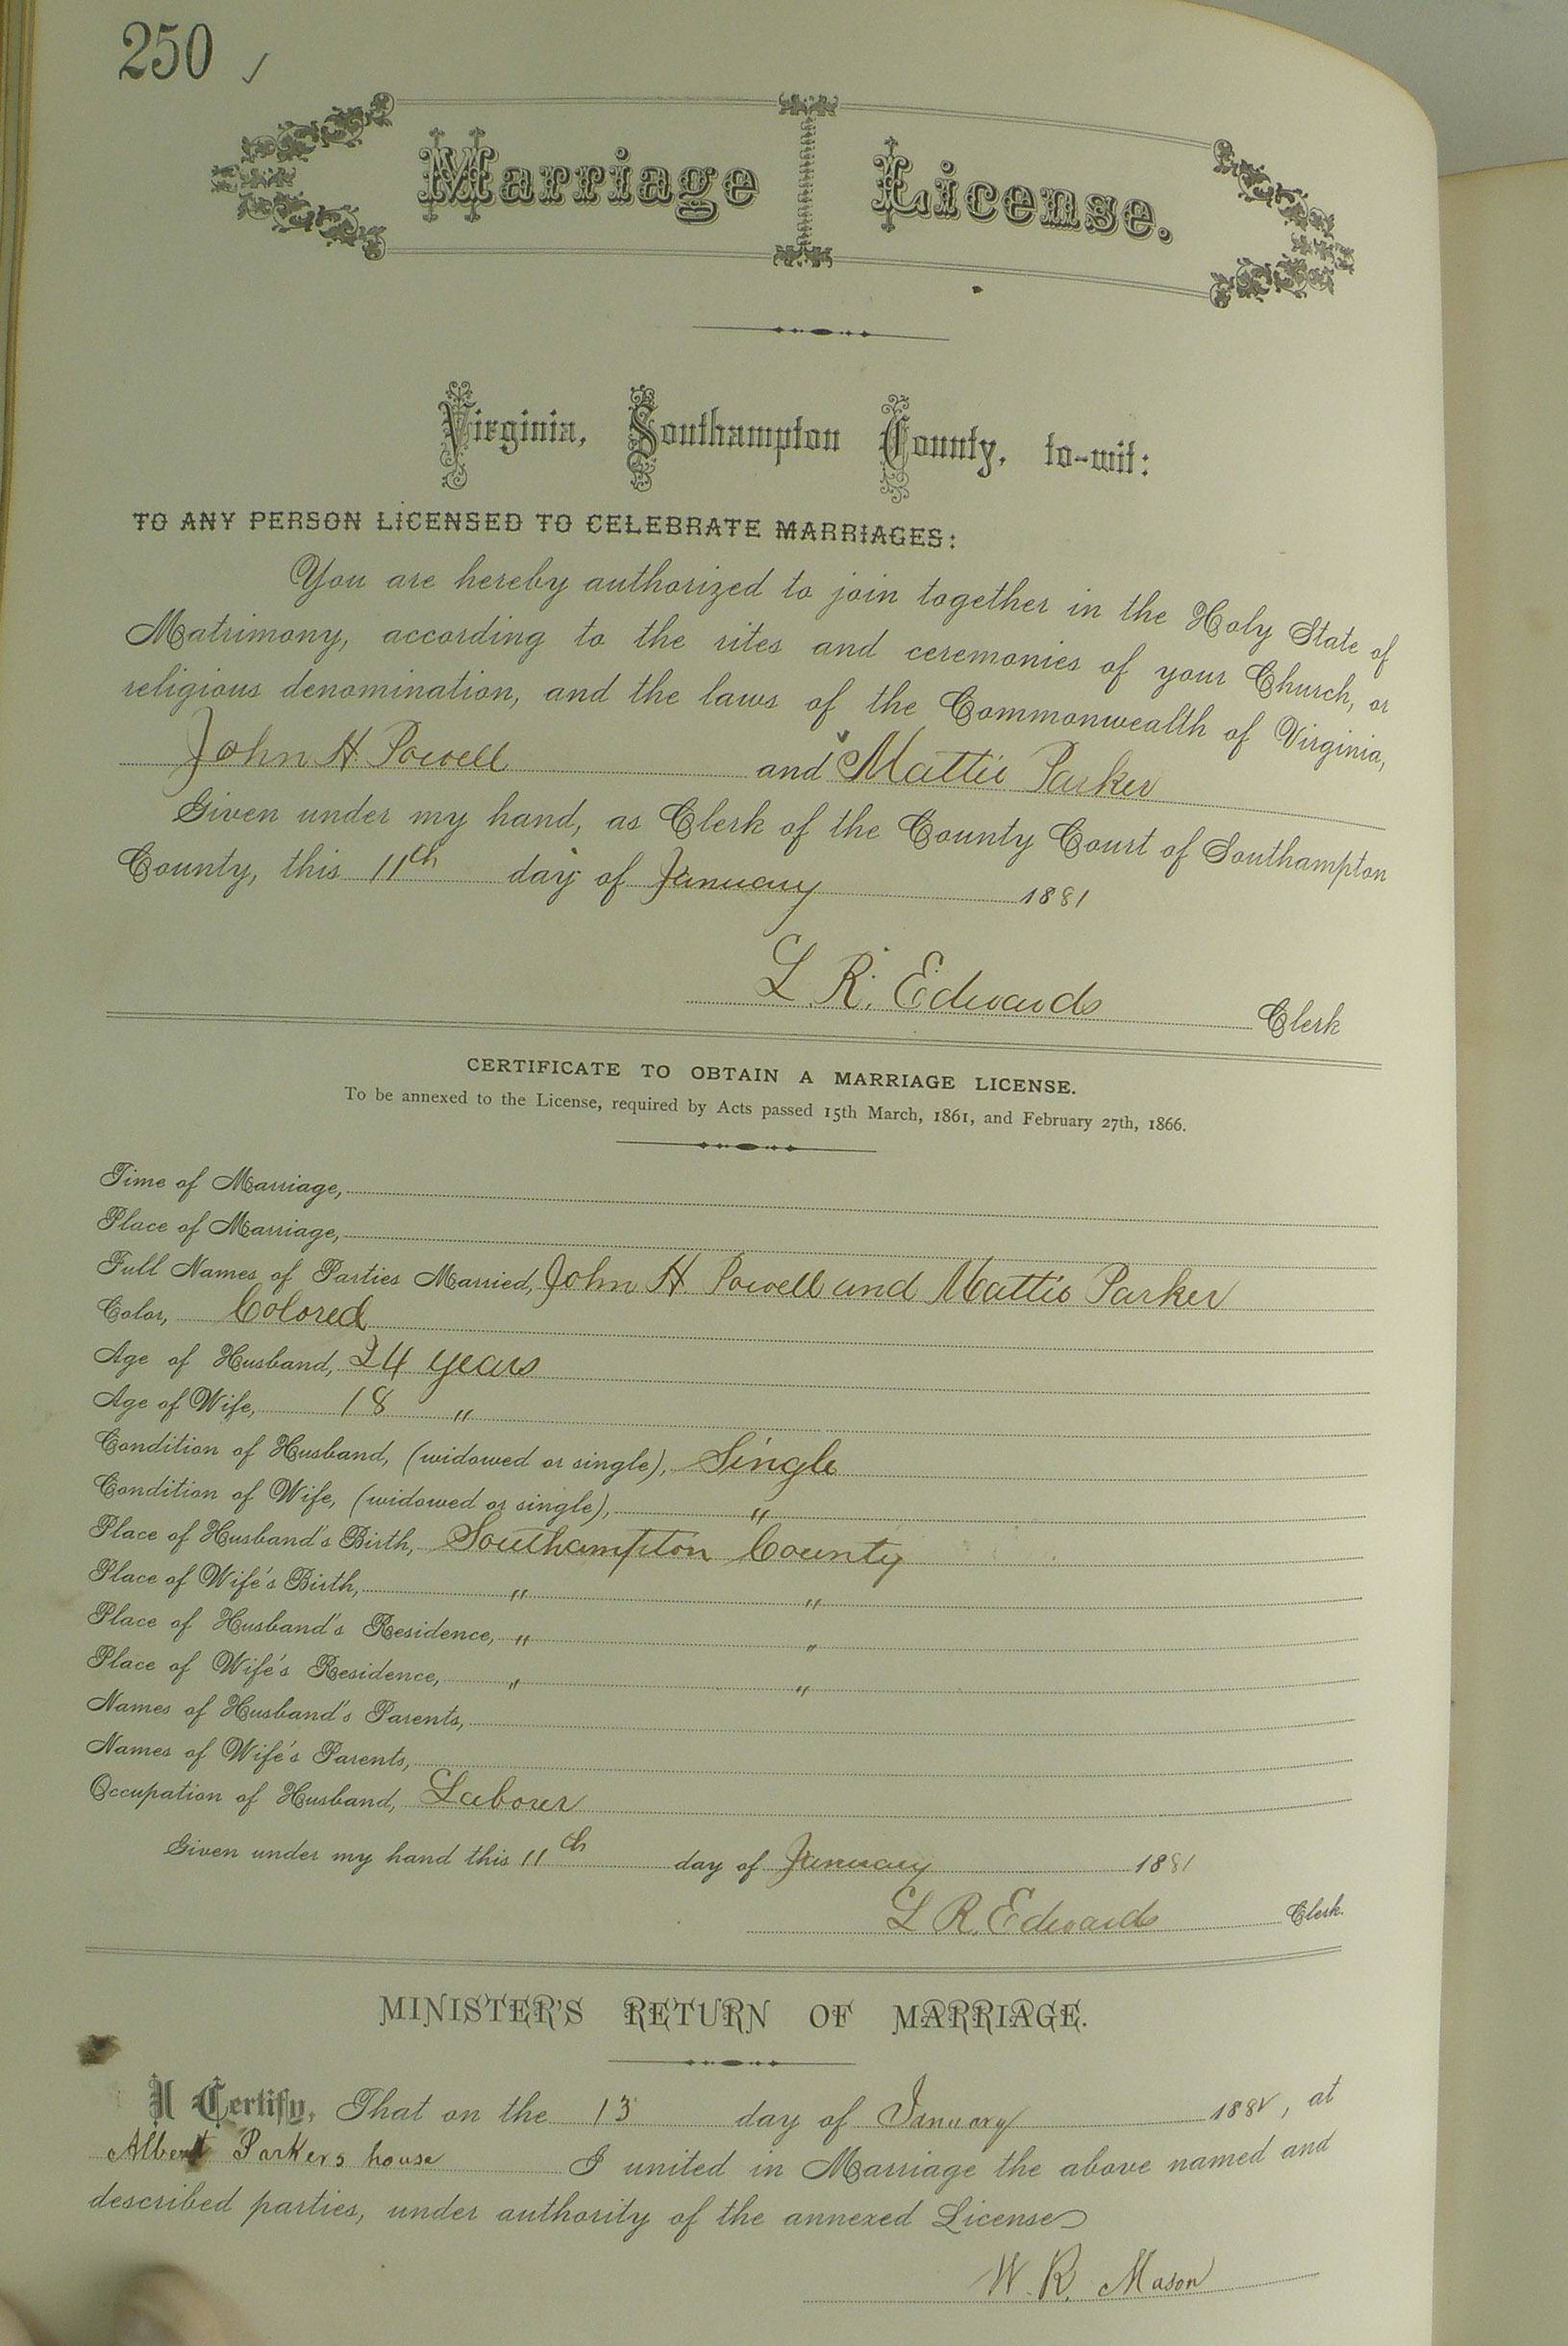 250 ✓
Marriage License.
Virginia, Southampton County, to-wit:
TO ANY PERSON LICENSED TO CELEBRATE MARRIAGES:
You are hereby authorized to join together in the Holy State of
Matrimony, according to the rites and ceremonies of your Church, or
religious denomination, and the laws of the Commonwealth of Virginia,
John H. Powell and Mattie Parker
Given under my hand, as Clerk of the County Court of Southampton
County, this 11th day of January 1881
L. R. Edwards Clerk
CERTIFICATE TO OBTAIN A MARRIAGE LICENSE.
To be annexed to the License, required by Acts passed 15th March, 1861, and February 27th, 1866.
Time of Marriage,
Place of Marriage,
Full Names of Parties Married, John H. Powell and Mattie Parker
Color, Colored
Age of Husband, 24 years
Age of Wife, 18 "
Condition of Husband, (widowed or single), Single
Condition of Wife, (widowed or single), "
Place of Husband's Birth, Southampton County
Place of Wife's Birth, " "
Place of Husband's Residence, " "
Place of Wife's Residence, " "
Names of Husband's Parents,
Names of Wife's Parents,
Occupation of Husband, Laborer
Given under my hand this 11th day of January 1881
L R. Edwards Clerk.
MINISTER'S RETURN OF MARRIAGE.
I Certify, That on the 13 day of January , at
Albert Parkers house I united in Marriage the above named and
described parties, under authority of the annexed License
W. R. Mason